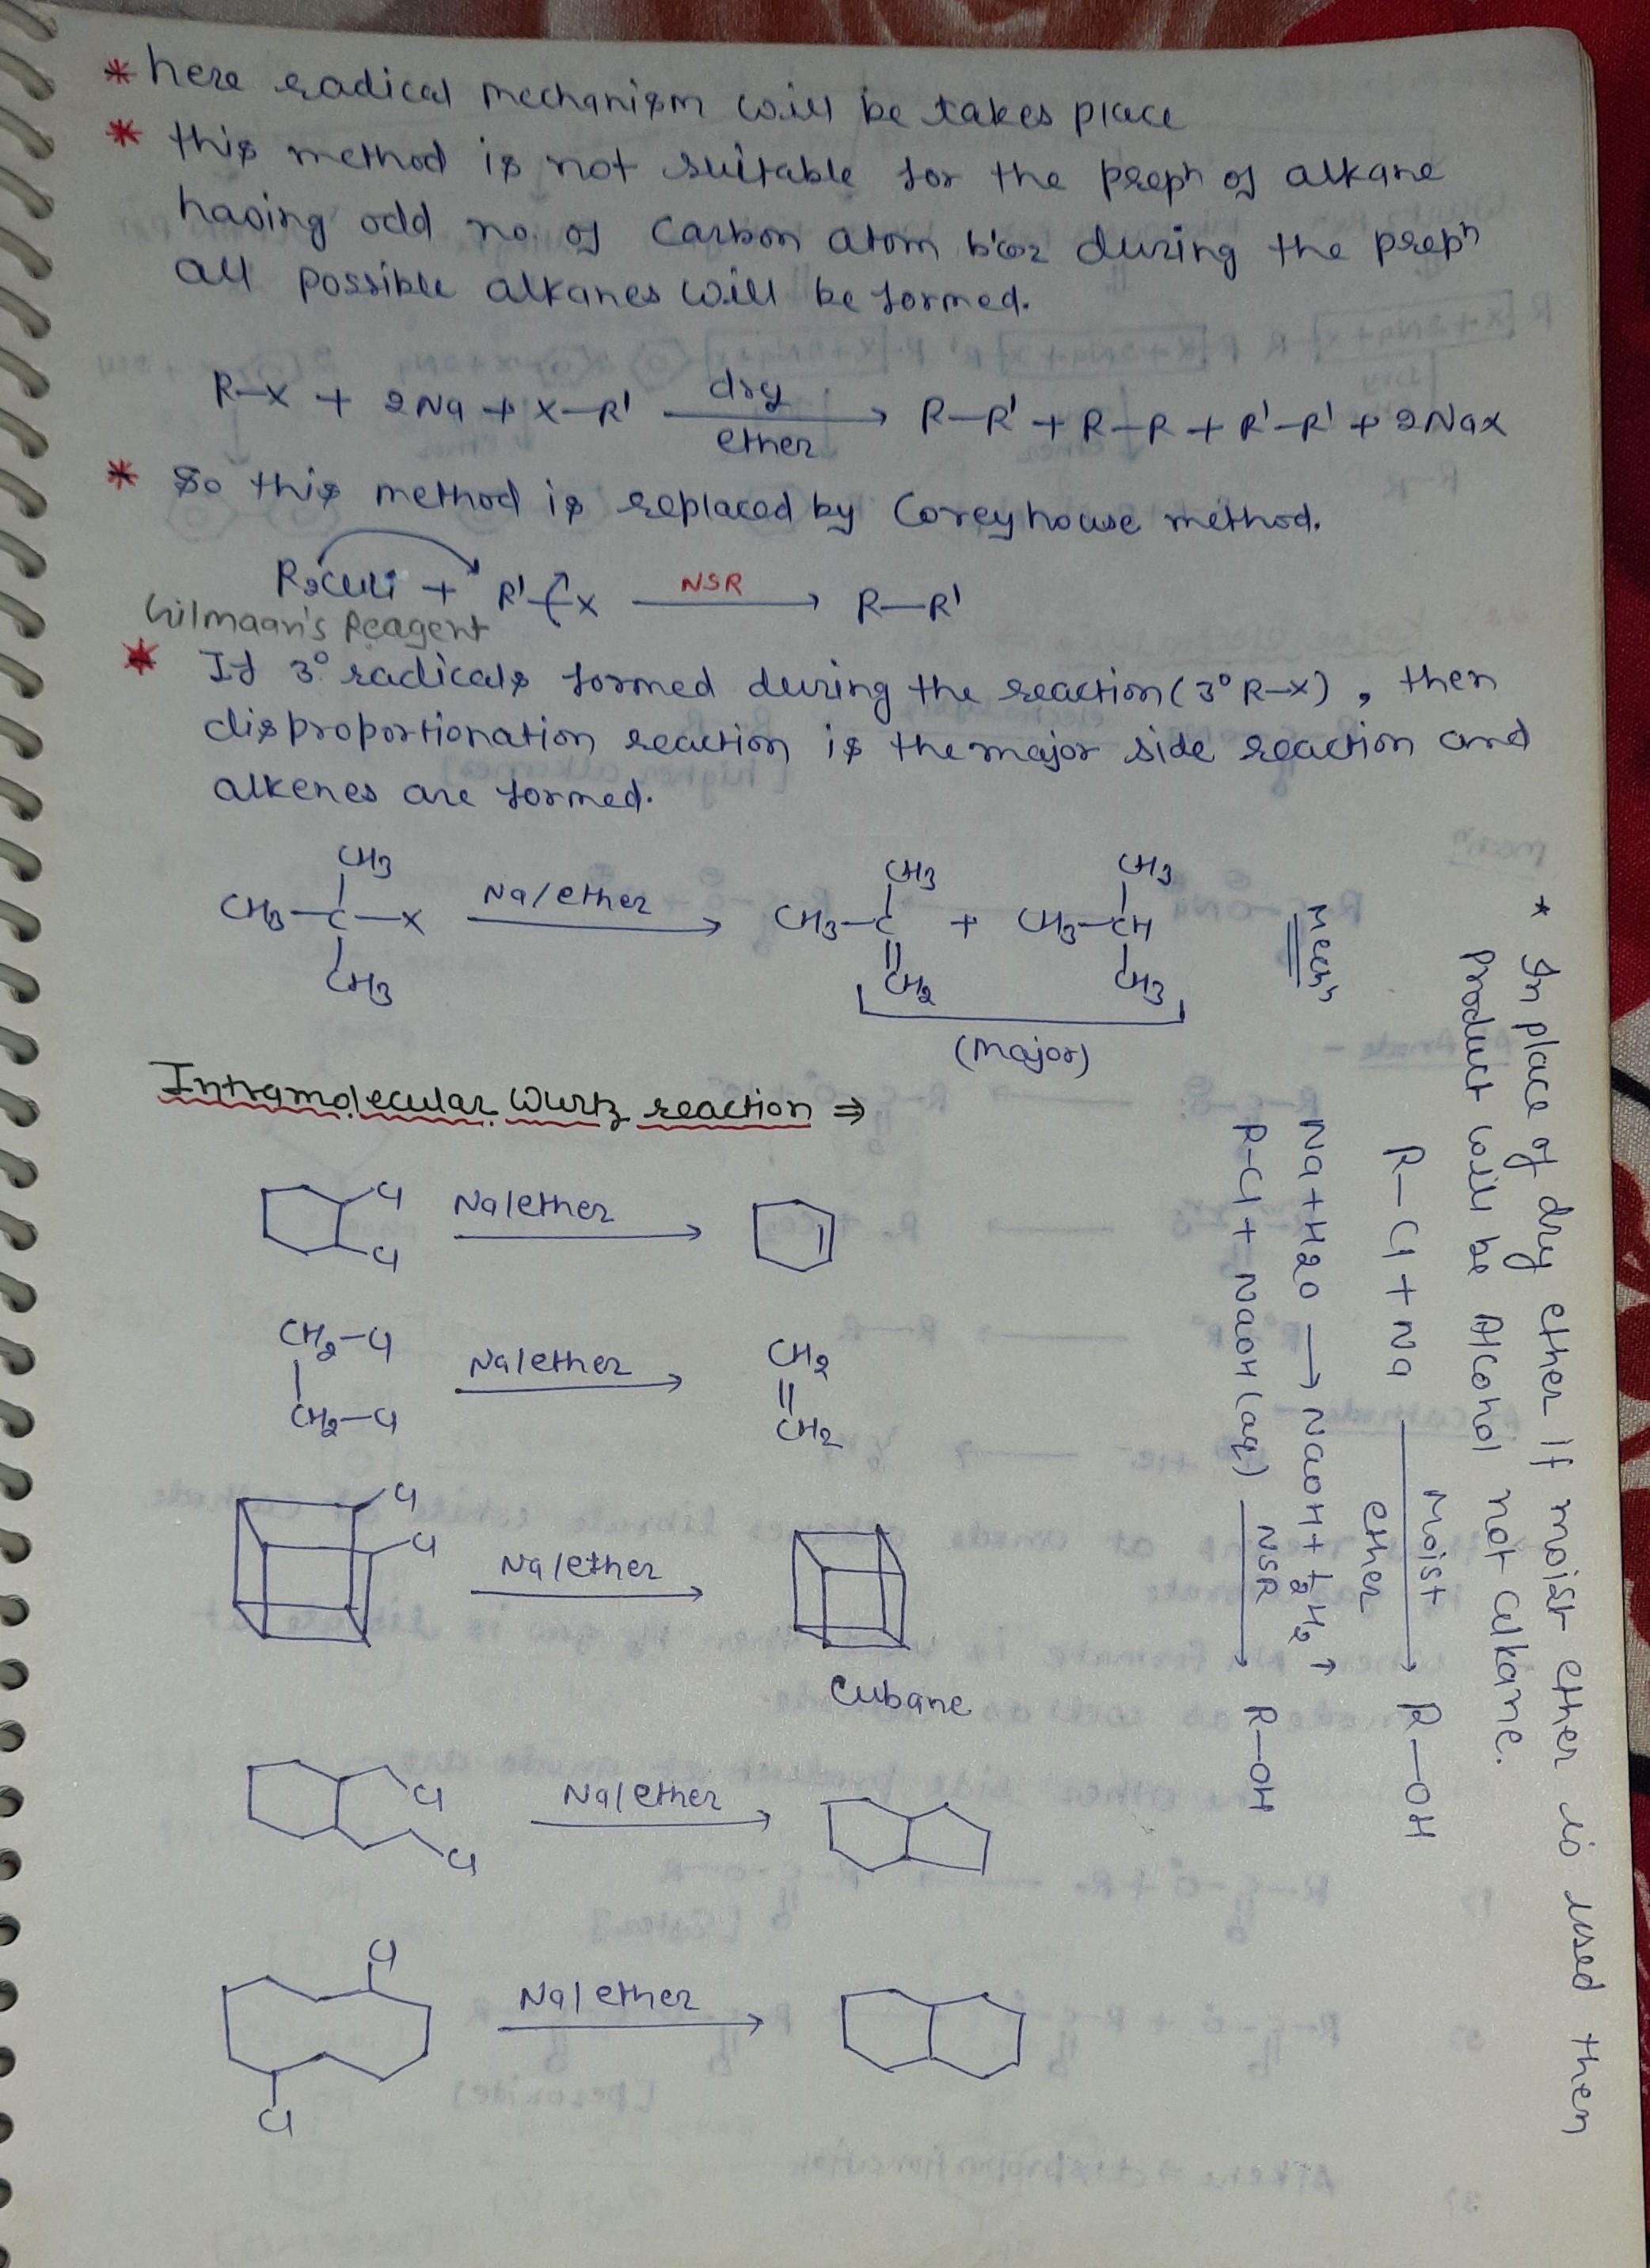 * here radical mechanism will be takes place
* this method is not suitable for the prepⁿ of alkane
having odd no. of Carbon atom b'coz during the prepⁿ
all possible alkanes will be formed.
R-X + 2Na + X-R' dry ether → R-R' + R-R + R'-R' + 2Nax
* So this method is replaced by Coreyhouse method.
R₂CuLi + R'-X NSR → R-R'
Gilmaan's Reagent
* If 3° radicals formed during the reaction (3° R-X), then
disproportionation reaction is the major side reaction and
alkenes are formed.
CH₃ CH₃ CH₃
CH₃-C-X Na/ether → CH₃-C + CH₃-CH
CH₃ CH₂ CH₃
(major)
Intramolecular Wurtz reaction ⇒
Cl
Na/ether →
Cl
CH₂-Cl CH₂
Na/ether →
CH₂-Cl CH₂
Cl
Cl
Na/ether →
Cubane
Cl
Na/ether →
Cl
Cl
Na/ether →
Cl
* In place of dry ether if moist ether is used then
product will be Alcohol not alkane.
R-Cl + Na moist ether → R-OH
Mechⁿ
Na + H2O → NaOH + ½H₂ ↑
R-Cl + NaOH (aq) NSR → R-OH